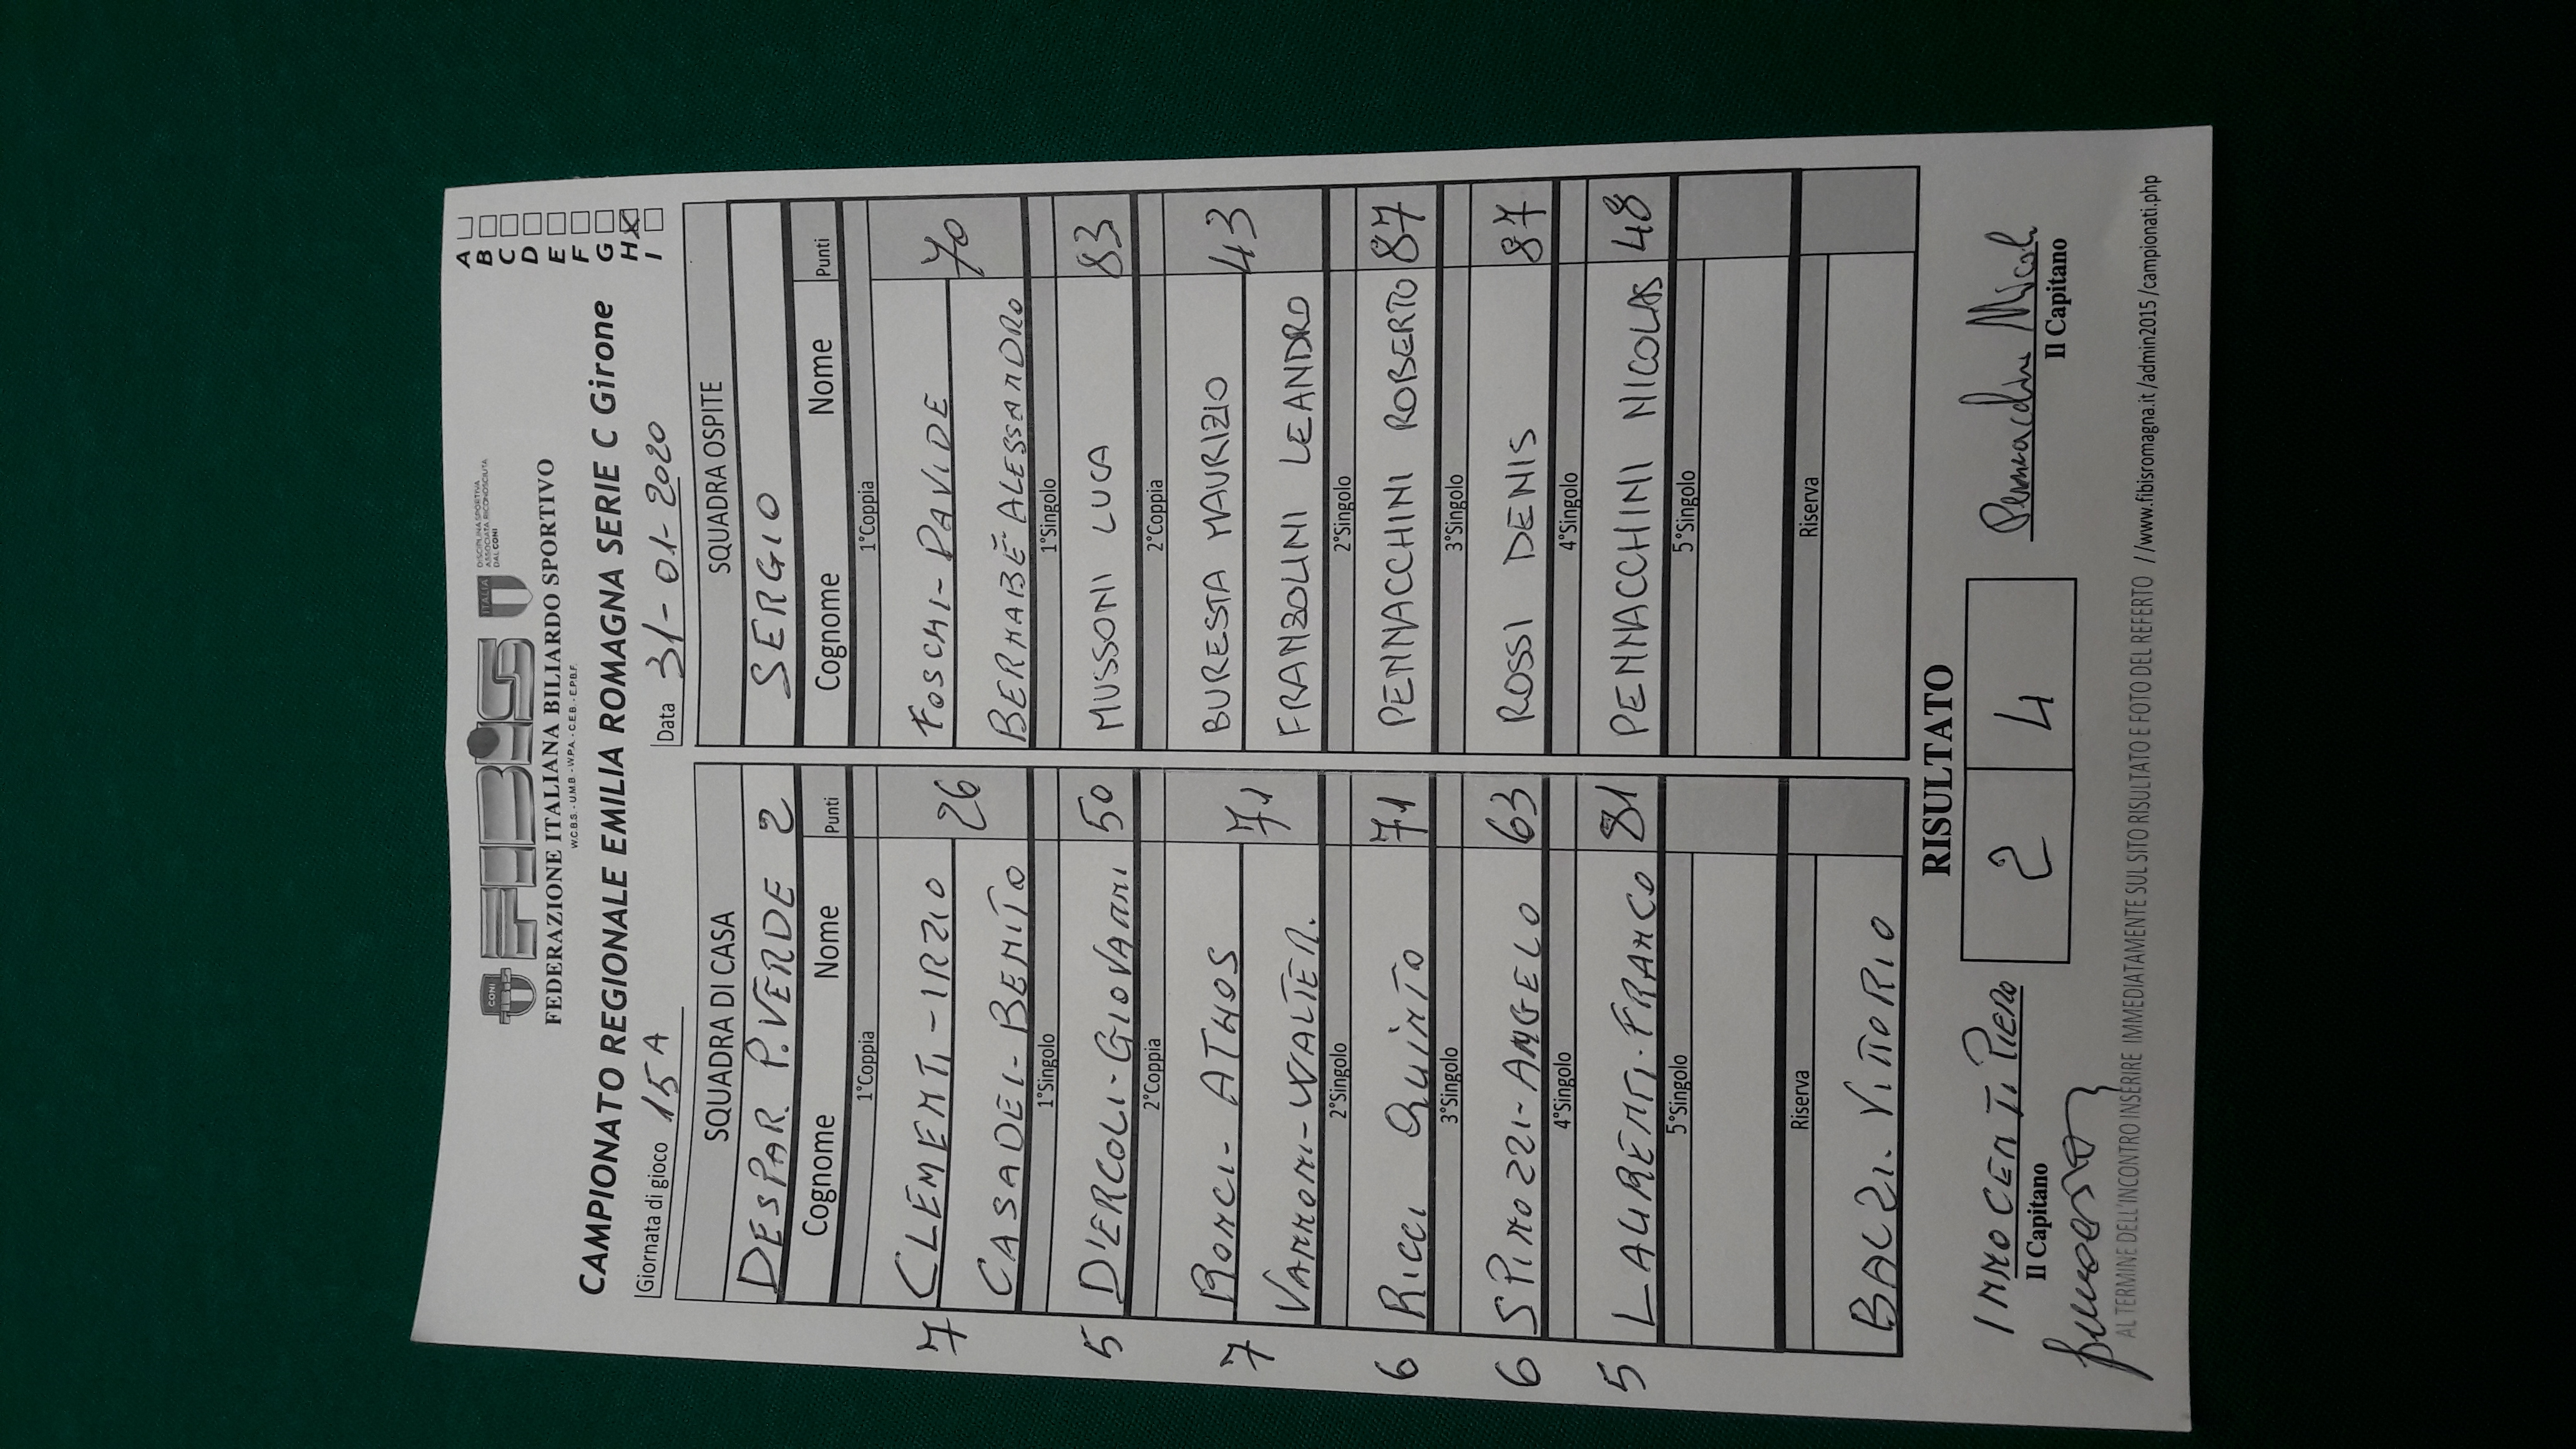 CONI
FIBIS
ITALIA
DISCIPLINA SPORTIVA
ASSOCIATA RICONOSCIUTA
DAL CONI
FEDERAZIONE ITALIANA BILIARDO SPORTIVO
W.C.B.S. - U.M.B. - W.P.A. - C.E.B. - E.P.B.F.
CAMPIONATO REGIONALE EMILIA ROMAGNA SERIE C Girone
A
B
C
D
E
F
G
H X
I
Giornata di gioco 15 A
Data 31-01-2020
SQUADRA DI CASA
DESPAR P.VERDE 2
Cognome Nome Punti
1°Coppia
7 CLEMENTI-IRZIO 26
CASADEI-BENITO
1°Singolo
5 D'ERCOLI-GIOVANNI 50
2°Coppia
7 RONCI-ATHOS 71
VANNONI-WALTER.
2°Singolo
6 RICCI QUINTO 71
3°Singolo
6 SPINOZZI-ANGELO 63
4°Singolo
5 LAURENTI-FRANCO 81
5°Singolo
Riserva
BALZI-VITTORIO
SQUADRA OSPITE
SERGIO
Cognome Nome Punti
1°Coppia
FOSCHI-DAVIDE 70
BERNABÈ ALESSANDRO
1°Singolo
MUSSONI LUCA 83
2°Coppia
BURESTA MAURIZIO 43
FRANZOLINI LEANDRO
2°Singolo
PENNACCHINI ROBERTO 87
3°Singolo
ROSSI DENIS 87
4°Singolo
PENNACCHINI NICOLAS 48
5°Singolo
Riserva
RISULTATO
2 4
INNOCENTI PIERO
Il Capitano
Pennacchini Nicolas
Il Capitano
AL TERMINE DELL'INCONTRO INSERIRE IMMEDIATAMENTE SUL SITO RISULTATO E FOTO DEL REFERTO //www.fibisromagna.it/admin2015/campionati.php